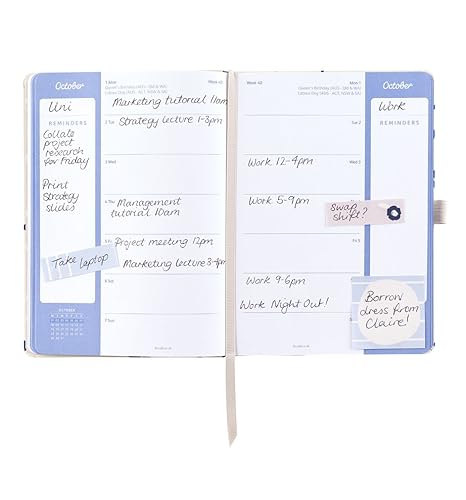 October
1 Mon
Week 40
Queen's Birthday (AUS - QLD & WA)
Labour Day (AUS - ACT, NSW & SA)
Uni
Marketing tutorial 11am
REMINDERS
2 Tue
Strategy lecture 1-3pm
Collate
project
research
for Friday
3 Wed
Print
Strategy
slides
4 Thu
Management
tutorial 10am
5 Fri
Project meeting 12pm
Take laptop
Marketing lecture 3-4pm
6 Sat
OCTOBER
7 Sun
Week 40
Mon 1
Queen's Birthday (AUS - QLD & WA)
Labour Day (AUS - ACT, NSW & SA)
October
Work
Tue 2
REMINDERS
Wed 3
Work 12-4pm
Work 5-9pm
swap
shift?
Fri 5
Work 9-6pm
Work Night Out!
Borrow
dress from
Claire!